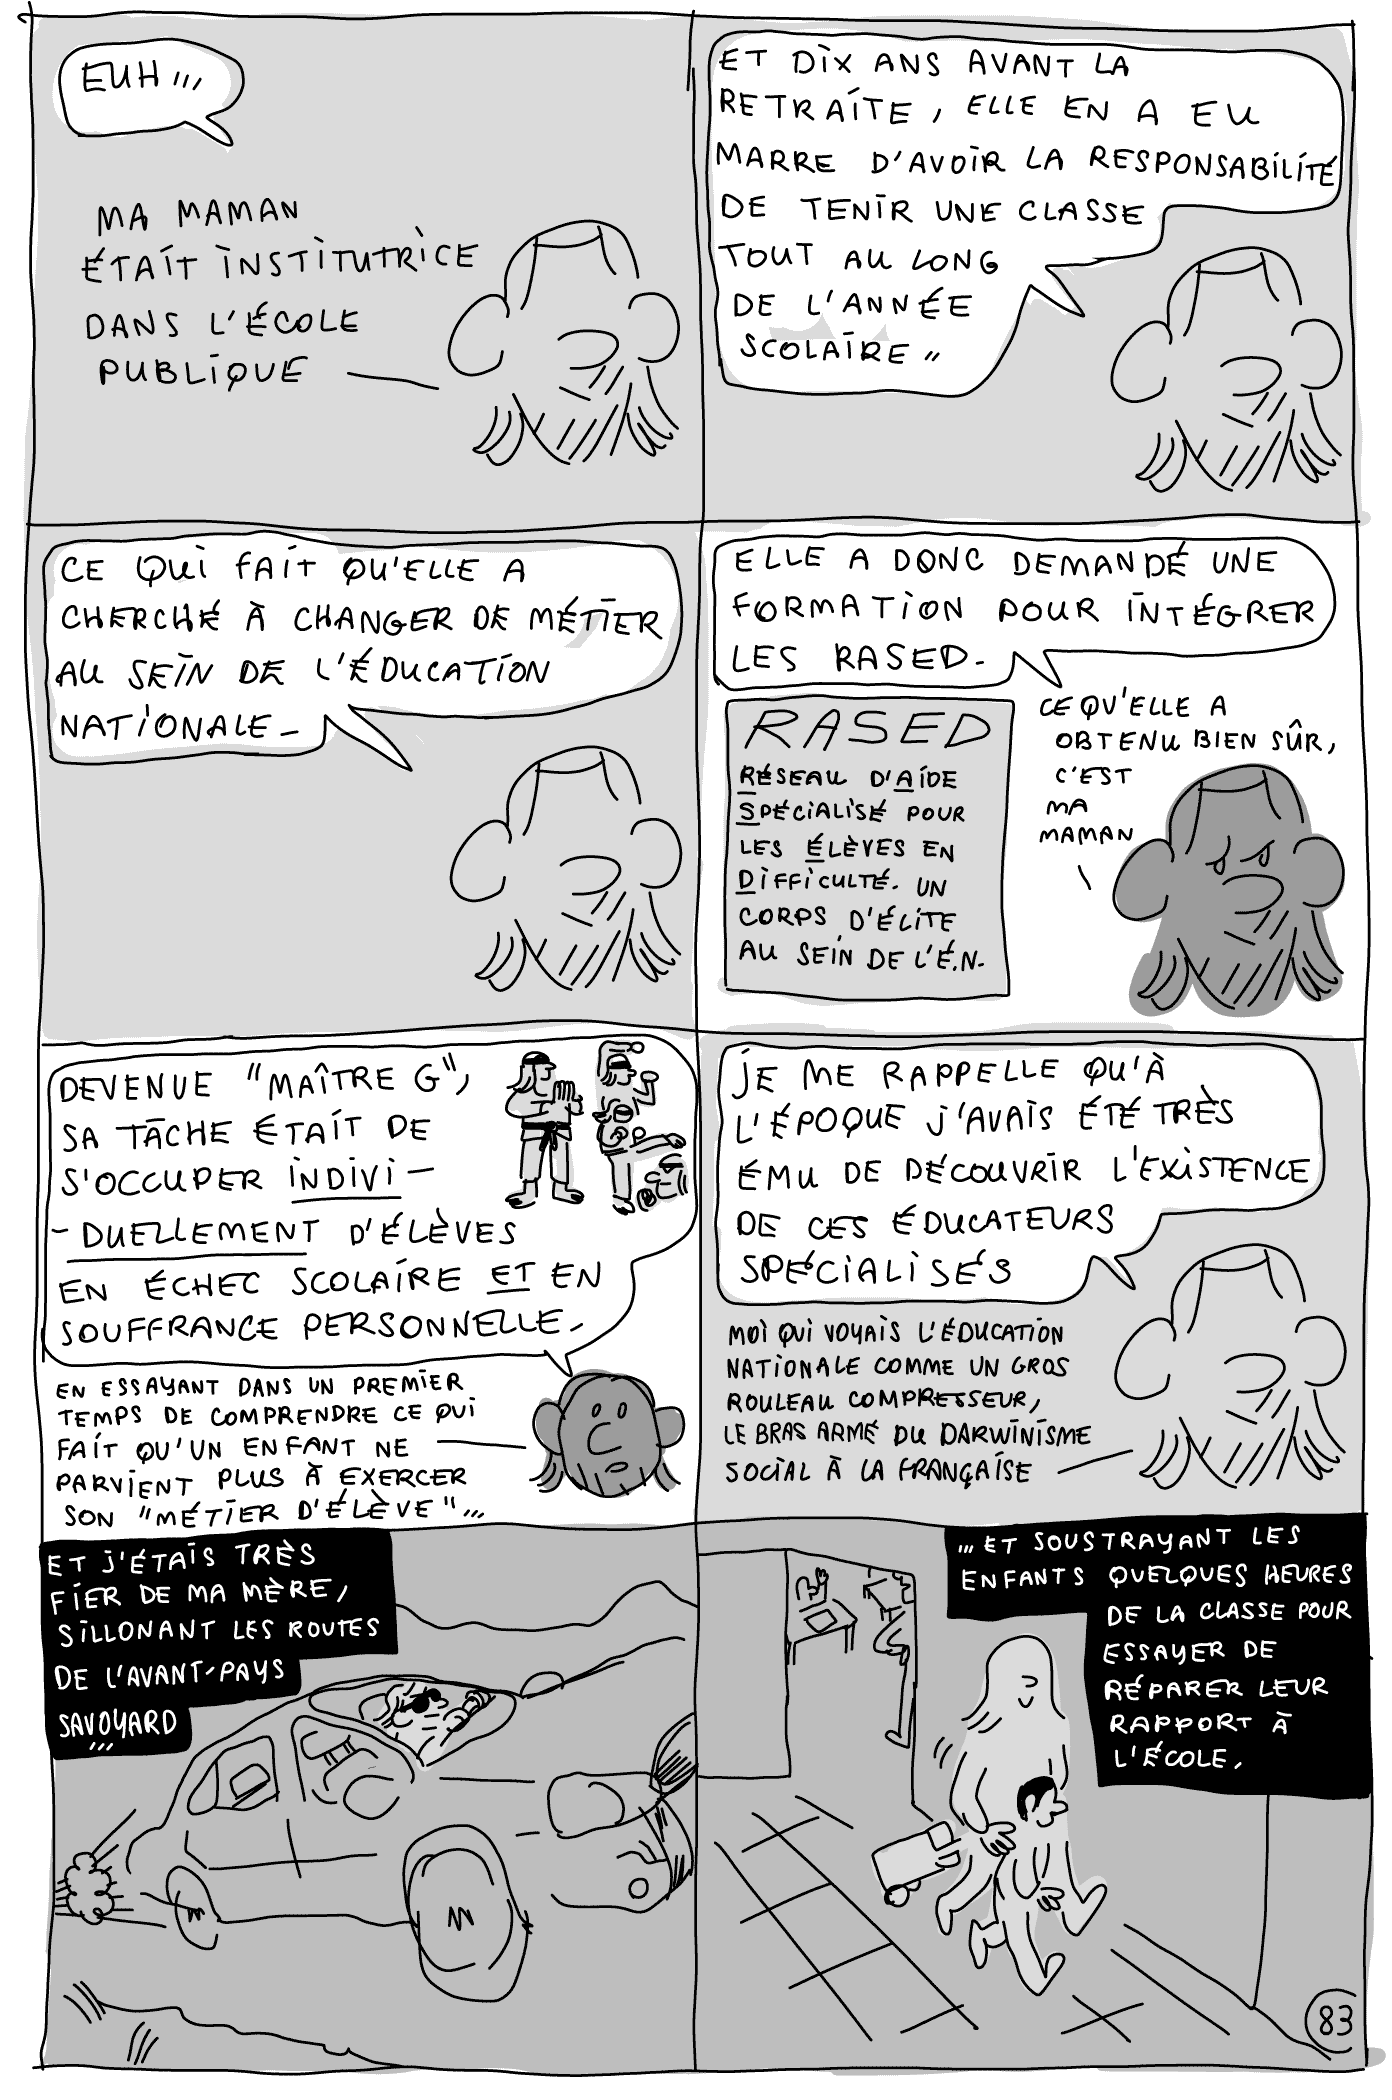 EUH...
MA MAMAN
ÉTAIT INSTITUTRICE
DANS L'ÉCOLE
PUBLIQUE
ET DIX ANS AVANT LA
RETRAITE, ELLE EN A EU
MARRE D'AVOIR LA RESPONSABILITÉ
DE TENIR UNE CLASSE
TOUT AU LONG
DE L'ANNÉE
SCOLAIRE..
CE QUI FAIT QU'ELLE A
CHERCHÉ À CHANGER DE MÉTIER
AU SEIN DE L'ÉDUCATION
NATIONALE_
ELLE A DONC DEMANDÉ UNE
FORMATION POUR INTÉGRER
LES RASED.
RASED
RÉSEAU D'AIDE
SPÉCIALISÉ POUR
LES ÉLÈVES EN
DIFFICULTÉ. UN
CORPS D'ÉLITE
AU SEIN DE L'É.N.
CE QU'ELLE A
OBTENU BIEN SÛR,
C'EST
MA
MAMAN
DEVENUE "MAÎTRE G",
SA TÂCHE ÉTAIT DE
S'OCCUPER INDIVI-
-DUELLEMENT D'ÉLÈVES
EN ÉCHEC SCOLAIRE ET EN
SOUFFRANCE PERSONNELLE.
EN ESSAYANT DANS UN PREMIER
TEMPS DE COMPRENDRE CE QUI
FAIT QU'UN ENFANT NE
PARVIENT PLUS À EXERCER
SON "MÉTIER D'ÉLÈVE"...
JE ME RAPPELLE QU'À
L'ÉPOQUE J'AVAIS ÉTÉ TRÈS
ÉMU DE DÉCOUVRIR L'EXISTENCE
DE CES ÉDUCATEURS
SPÉCIALISÉS
MOI QUI VOYAIS L'ÉDUCATION
NATIONALE COMME UN GROS
ROULEAU COMPRESSEUR,
LE BRAS ARMÉ DU DARWINISME
SOCIAL À LA FRANÇAISE
ET J'ÉTAIS TRÈS
FIER DE MA MÈRE,
SILLONANT LES ROUTES
DE L'AVANT-PAYS
SAVOYARD
...
...ET SOUSTRAYANT LES
ENFANTS QUELQUES HEURES
DE LA CLASSE POUR
ESSAYER DE
RÉPARER LEUR
RAPPORT À
L'ÉCOLE.
83